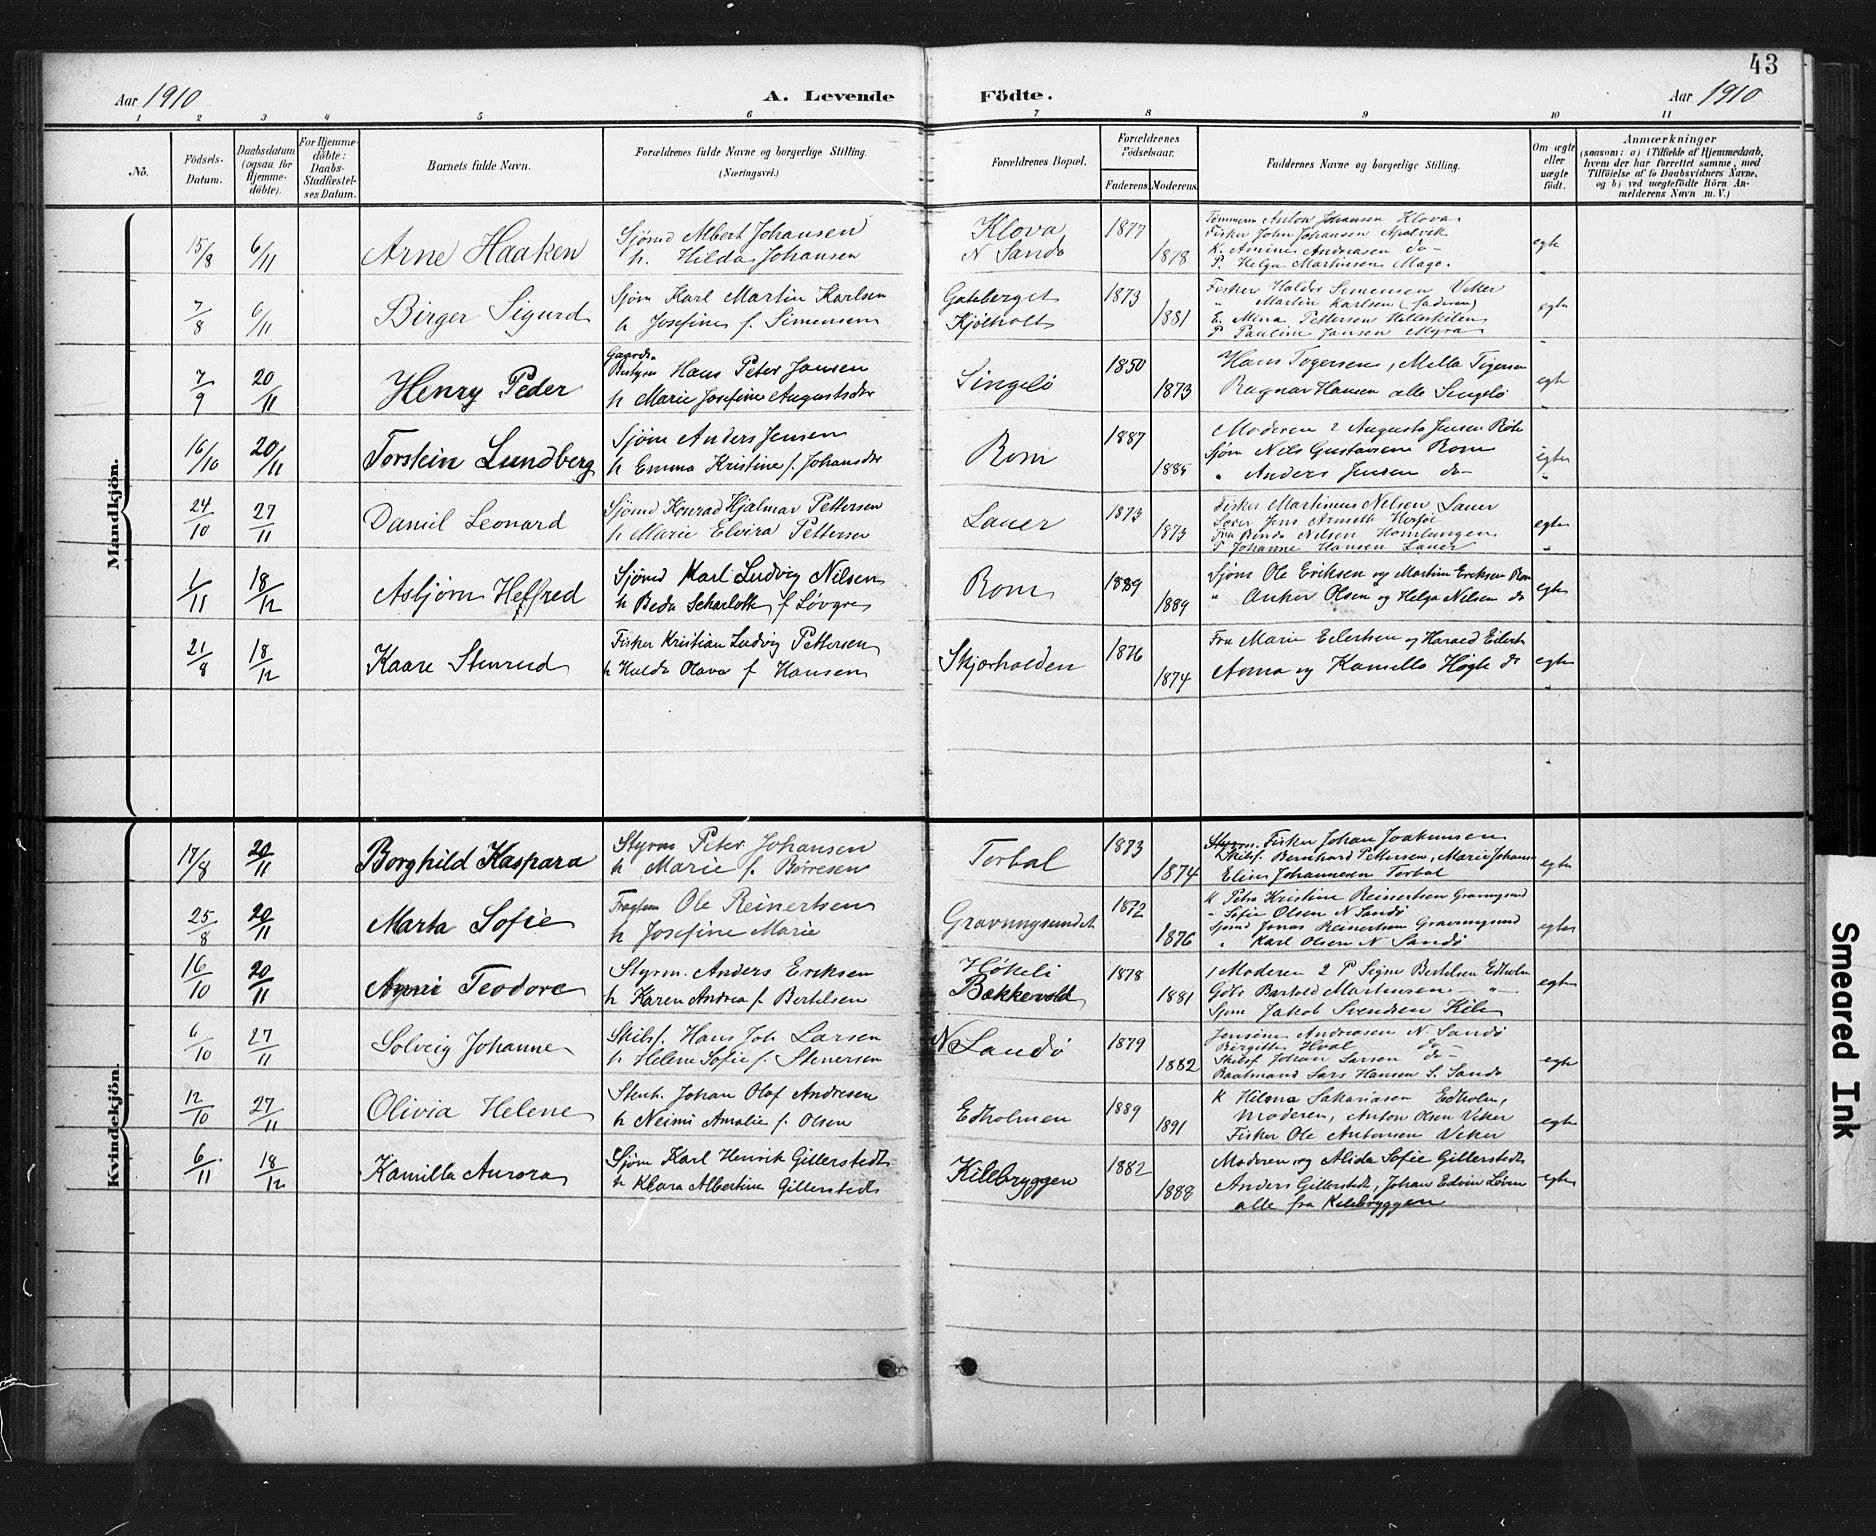 43
Aar 1910
A. Levende
Födte.
Aar 1910
1 2 3 4 5 6 7 8 9 10 11
No.
Födsels-Datum.
Daabsdatum (ogsaa for Hjemme-döbte).
For Hjemme-döbte: Daabs-Stadfæstel-ses Datum.
Barnets fulde Navn.
Forældrenes fulde Navne og borgerlige Stilling. (Næringsvei.)
Forældrenes Bopæl.
Forældrenes Födselsaar.
Faderens. Moderens.
Faddernes Navne og borgerlige Stilling.
Om ægte eller uægte födt.
Anmærkninger
(saasom: a) i Tilfælde af Hjemmedaab,
hvem der har forrettet samme, med
Tilföielse af to Daabsvidners Navne,
og b) ved uægtefödte Börn An-
melderens Navn m. V.)
Mandkjön.
15/8 6/11 Arne Haaken
Sjømd Albert Johansen
h. Hilda Johansen
Klova
N Sandø
1877 1878
Tømmerm Anton Johansen Klova
Fisker John Johansen
K. Amine Andreasen do
P. Helga Martinsen
egte
7/8 6/11 Birger Sigurd
Sjøm Karl Martin Karlsen
h Josefine f. Simensen
Gateberget
Kjølholt
1873 1881
Fisker Haldor Simensen Viker
" Martin Karlsen (faderen)
E. Mina Pettersen
P Pauline Jansen Myra
egte
7/9 20/11 Henry Peder
Gaards-
Bestyrer Hans Peter Jansen
h Marie Josefine Augustsdtr
Singelö
1850 1873
Hans Togersen, Milla
Ragnar Hansen alle Singelö
egte
16/10 20/11 Torstein Lundberg
Sjøm Anders Jensen
h Emma Kristine f. Johansdtr
Rom
1887 1885
Moderen 2 Augusta Jensen
Sjøm Nils Gustavsen Rom
" Anders Jensen do
egte
24/10 27/11 Daniel Leonard
Sjømd Konrad Hjalmar Pettersen
h Marie Elvira Pettersen
Lauer
1873 1873
Fisker Martinus Nilsen Lauer
Jens Herföl
Fru Nilsen Homlungen
P Johanne Hansen Lauer
egte
1/11 18/12 Asbjørn Heffred
Sjømd Karl Ludvig Nilsen
h Beda Scharlotte f Løvgren
Rom
1889 1889
Sjøm Ole Eriksen og Martin Eriksen Rom
" Anker Olsen og Helga Nilsen do
egte
21/8 18/12 Kaare Stenrud
Fisker Kristian Ludvig Pettersen
h Hulda Olava f Hansen
Skjærhalden
1876 1874
Fru Marie Eilertsen og Harald Eilert
Anna og Kamilla Høgh do
egte
Kvindekjön.
17/8 20/11 Borghild Kaspara
Styrm Peter Johansen
h Marie f. Børresen
Torbal
1873 1874
Styrm. Fisker Johan Joakimsen
Skibsf. Bernhard Pettersen, Marie Johans
Elise Johannesen Torbal
egte
25/8 20/11 Marta Sofie
Ole Reinertsen
h Josefine Marie
Gravningsundet
1872 1876
K Petra Kristine Reinertsen Gravngsund
" Sofie Olsen N Sandö
Sjømd Jonas Reinertsen Gravngsund
" Karl Olsen N Sandö
egte
16/10 20/11 Agni Teodore
Styrm. Anders Eriksen
h Karen Andrea f. Bertelsen
Høkeli
Bækkevold
1878 1881
1 Moderen 2 P Signe Bertelsen Edholm
Gdbr Bartold Martinsen - " -
Sjøm Jakob Svendsen Kile
egte
6/10 27/11 Solveig Johanne
Skibsf. Hans Joh Larsen
h Helene Sofie f. Stenersen
N Sandö
1879 1882
Jensine Andreasen N. Sandö
Birgitte Hval do
Skibsf Johan Larsen do
Baatsmand Lars Hansen S. Sandö
egte
12/10 27/11 Olivia Helene
Stenh. Johan Olaf Andresen
h Neimi Amalie f. Olsen
Edholmen
1889 1891
K Hilma Sakariasen Edholm,
Moderen, Anton Olsen Viker
Fisker Ole Antonsen Viker
egte
6/11 18/12 Kamilla Aurora
Sjøm Karl Henrik Gillerstedt
h Klara Albertine Gillerstedt
Kilebryggen
1882 1888
Moderen og Alida Sofie Gillerstedt
Anders Gillerstedt, Johan Edvin
alle fra Kilebryggen
egte
Smeared Ink